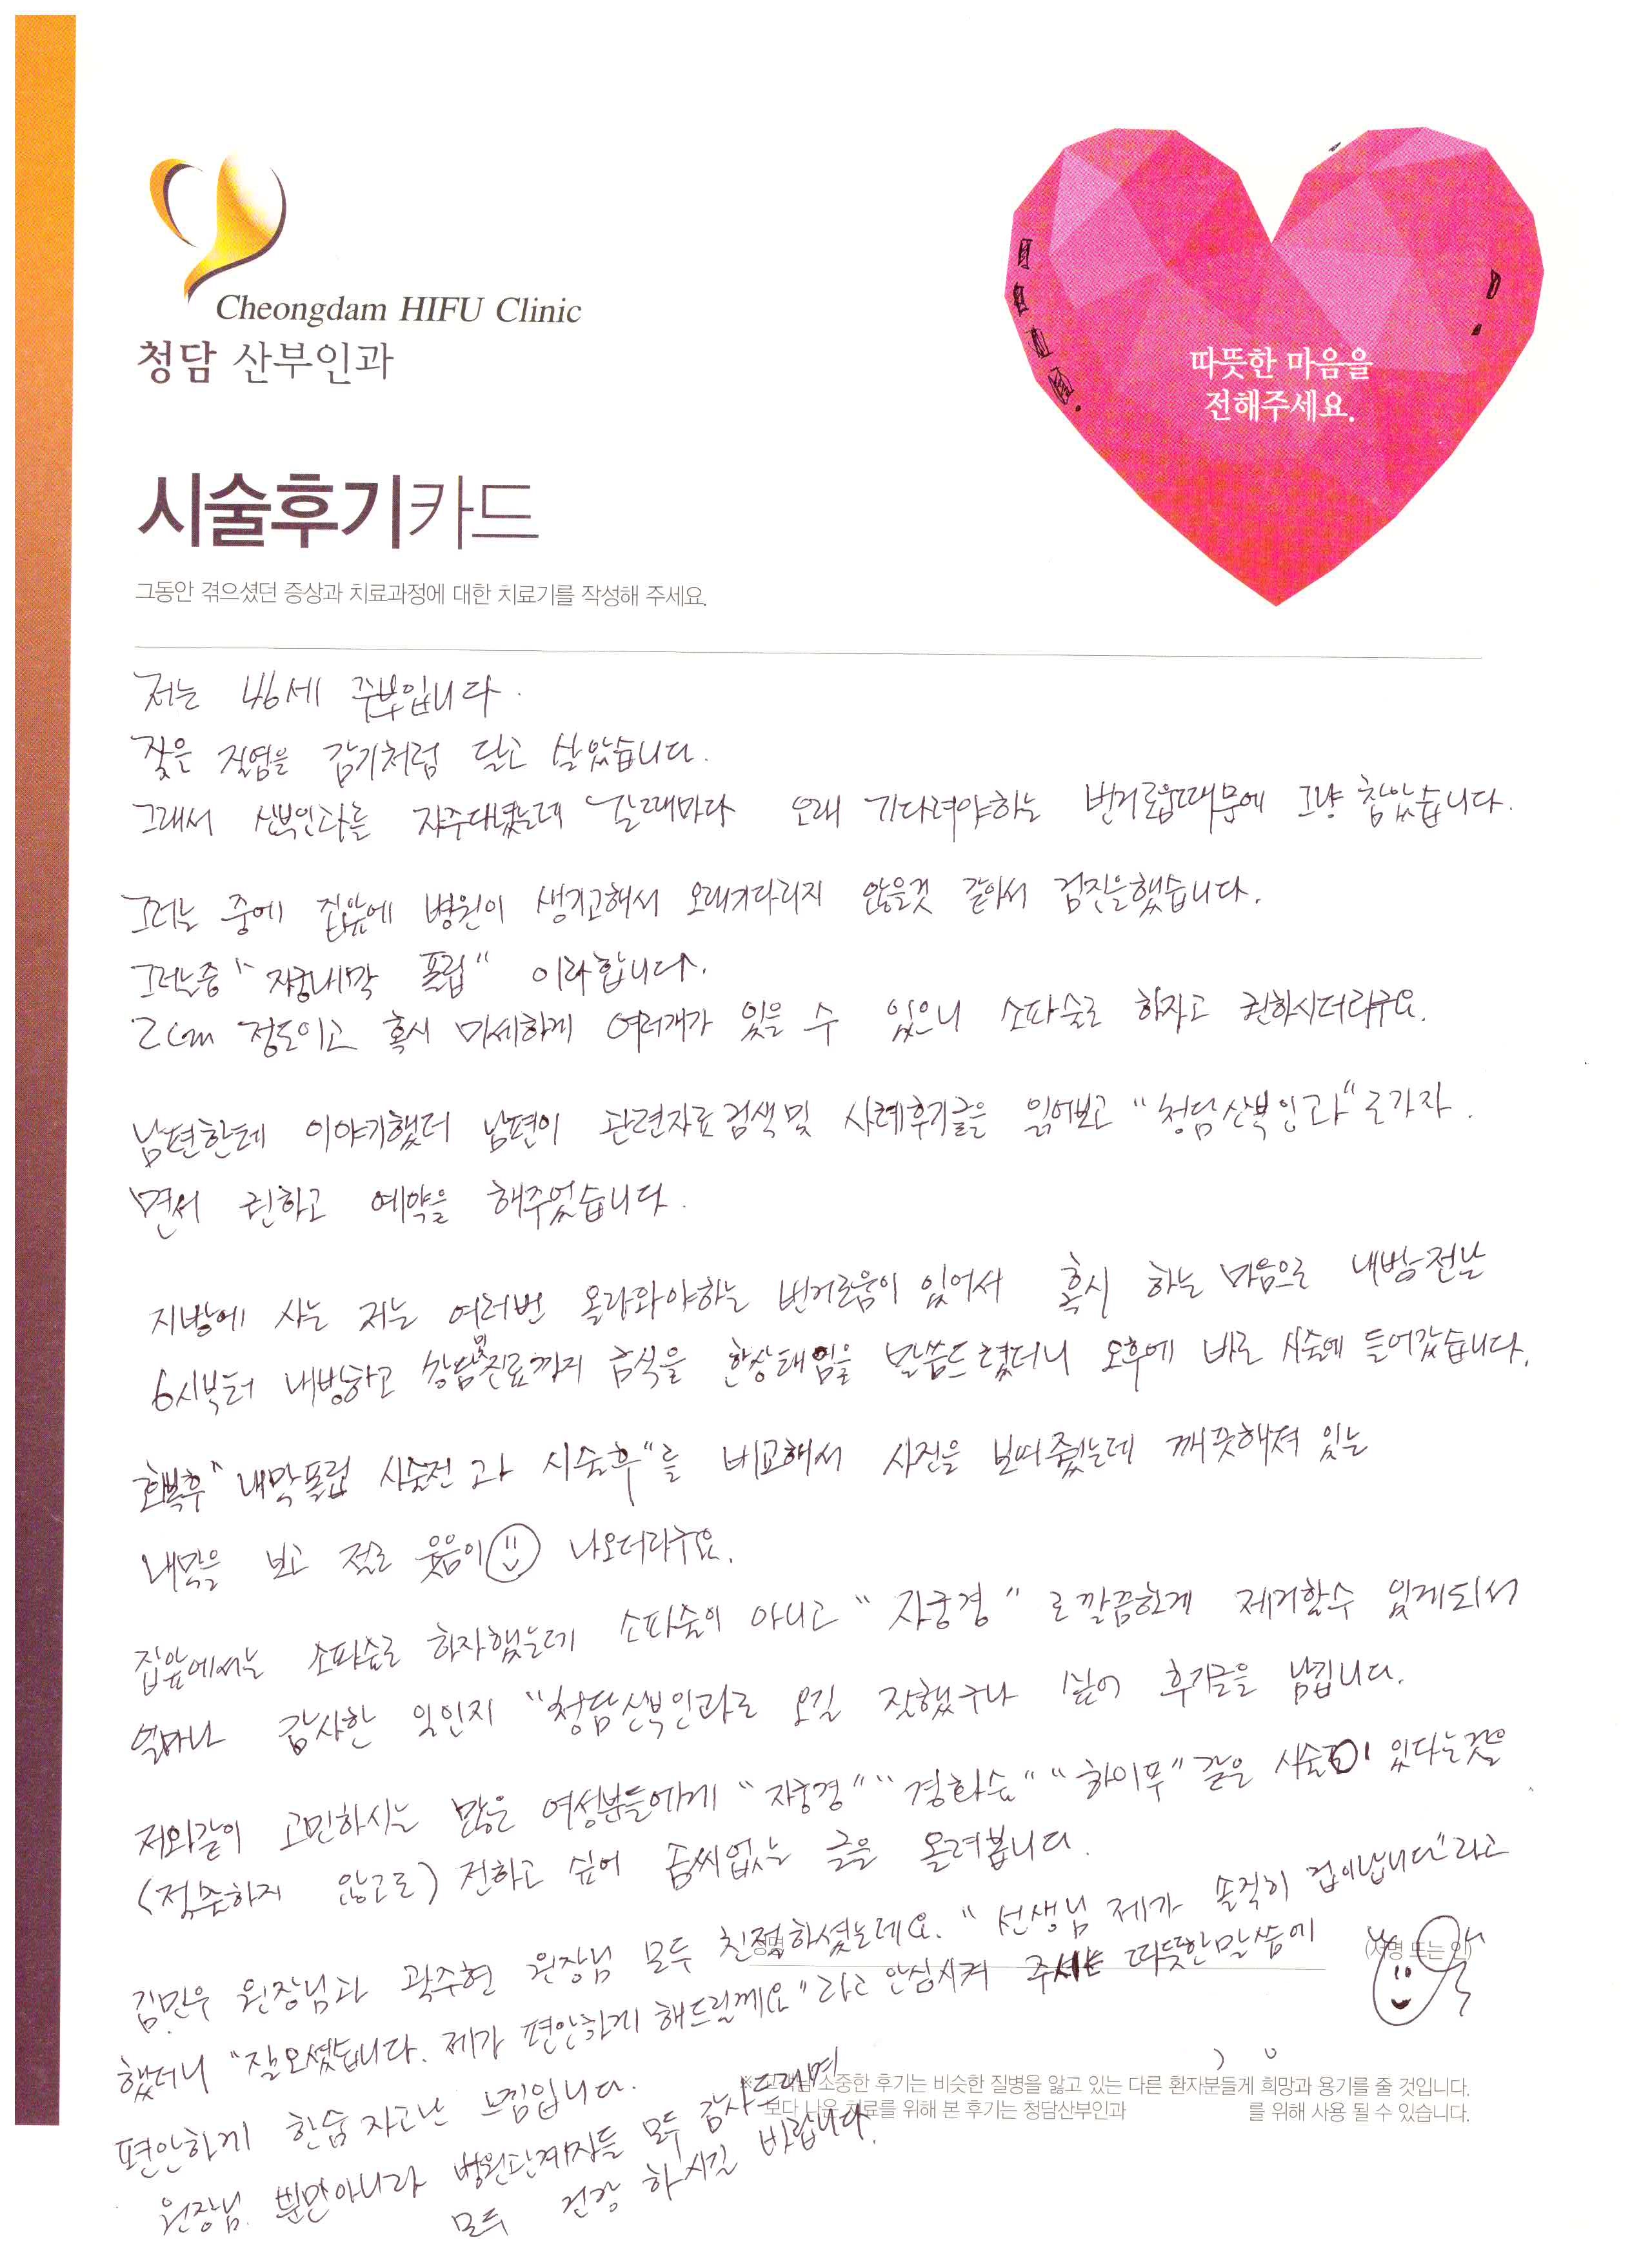 Cheongdam HIFU Clinic
청담 산부인과
따뜻한 마음을
전해주세요.
시술후기카드
그동안 겪으셨던 증상과 치료과정에 대한 치료기를 작성해 주세요.
저는 46세 주부입니다.
잦은 질염을 감기처럼 달고 살았습니다.
그래서 산부인과를 자주다녔는데 갈때마다 오래 기다려야하는 번거로움때문에 그냥 참았습니다.
그러는 중에 집앞에 병원이 생기고해서 오래기다리지 않을것 같아서 검진을했습니다.
그러는중 "자궁내막 폴립" 이라합니다.
2cm 정도이고 혹시 미세하게 여러개가 있을 수 있으니 소파술로 하자고 권하시더라구요.
남편한테 이야기했더니 남편이 관련자료검색및 사례후기글을 읽어보고 "청담산부인과"로가자
면서 권하고 예약을 해주었습니다.
지방에 사는 저는 여러번 올라와야하는 번거로움이 있어서 혹시 하는 마음으로 내방전날
6시부터 내방하고 상담및진료까지 금식을 한상태임을 말씀드렸더니 오후에 바로 시술에 들어갔습니다.
회복후 "내막폴립 시술전과 시술후"를 비교해서 사진을 보여줬는데 깨끗해져 있는
내막을 보고 절로 웃음이 나오더라구요.
집앞에서는 소파술로 하자했는데 소파술이 아니고 "자궁경"로깔끔하게 제거할수 있게되서
얼마나 감사한 일인지 "청담산부인과로 오길 잘했구나 싶어 후기글을 남깁니다.
저와같이 고민하시는 많은 여성분들에게 "자궁경" "경화술" "하이푸" 같은 시술이 있다는것을
(적출하지 않고로) 전하고 싶어 솜씨없는 글을 올려봅니다.
김민우 원장님과 곽주현 원장님 모두 친절하셨는데요. "선생님 제가 솔직히 겁이납니다"라고
(서명 또는 인)
했더니 "잘오셨습니다. 제가 편안하게 해드릴께요"라고 안심시켜 주시는 따뜻한말씀에
편안하게 한숨 자고난 느낌입니다.
원장님 뿐만아니라 병원관계자들 모두 감사드리며
모두 건강 하시길 바랍니다.
소중한 후기는 비슷한 질병을 앓고 있는 다른 환자분들게 희망과 용기를 줄 것입니다.
보다 나은 치료를 위해 본 후기는 청담산부인과 를 위해 사용 될 수 있습니다.